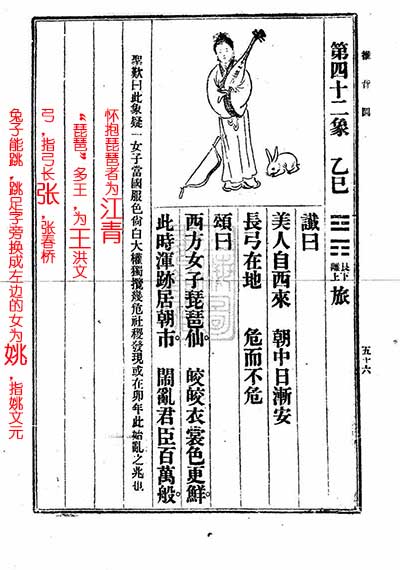 推背圖
五十六
第四十二象 乙巳
艮下
離上
旅
讖曰
美人自西來 朝中日漸安
長弓在地 危而不危
頌曰
西方女子琵琶仙 皎皎衣裳色更鮮。
此時渾跡居朝市。 鬧亂君臣百萬般。
聖歎曰此象疑一女子當國服色尚白大權獨攬幾危社稷發現或在卯年此始亂之兆也
怀抱琵琶者为江青
“琵琶”多王，为王洪文
弓，指弓长张，张春桥
兔子能跳，跳足字旁换成左边的女为姚，指姚文元